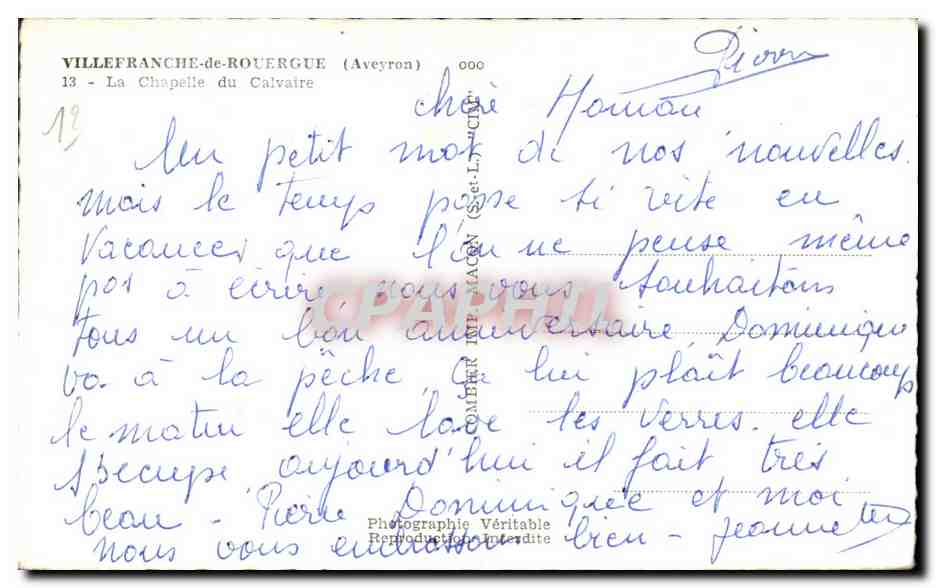 VILLEFRANCHE-de-ROUERGUE (Aveyron) ooo
13 - La Chapelle du Calvaire
12
chère Maman
Un petit mot de nos nouvelles.
mais le temps passe si vite en
vacances que l'on ne pense même
pas à écrire, nous vous souhaitons
tous un bon anniversaire, Dominique
va à la pêche, ça lui plaît beaucoup
le matin elle lave les verres. elle
s'occupe, aujourd'hui il fait très
beau - Pierre Dominique et moi
nous vous embrassons bien -
COMBIER IMP. MACON (S.-et-L.) "CIM"
Photographie Véritable
Reproduction Interdite
CPAPHIL